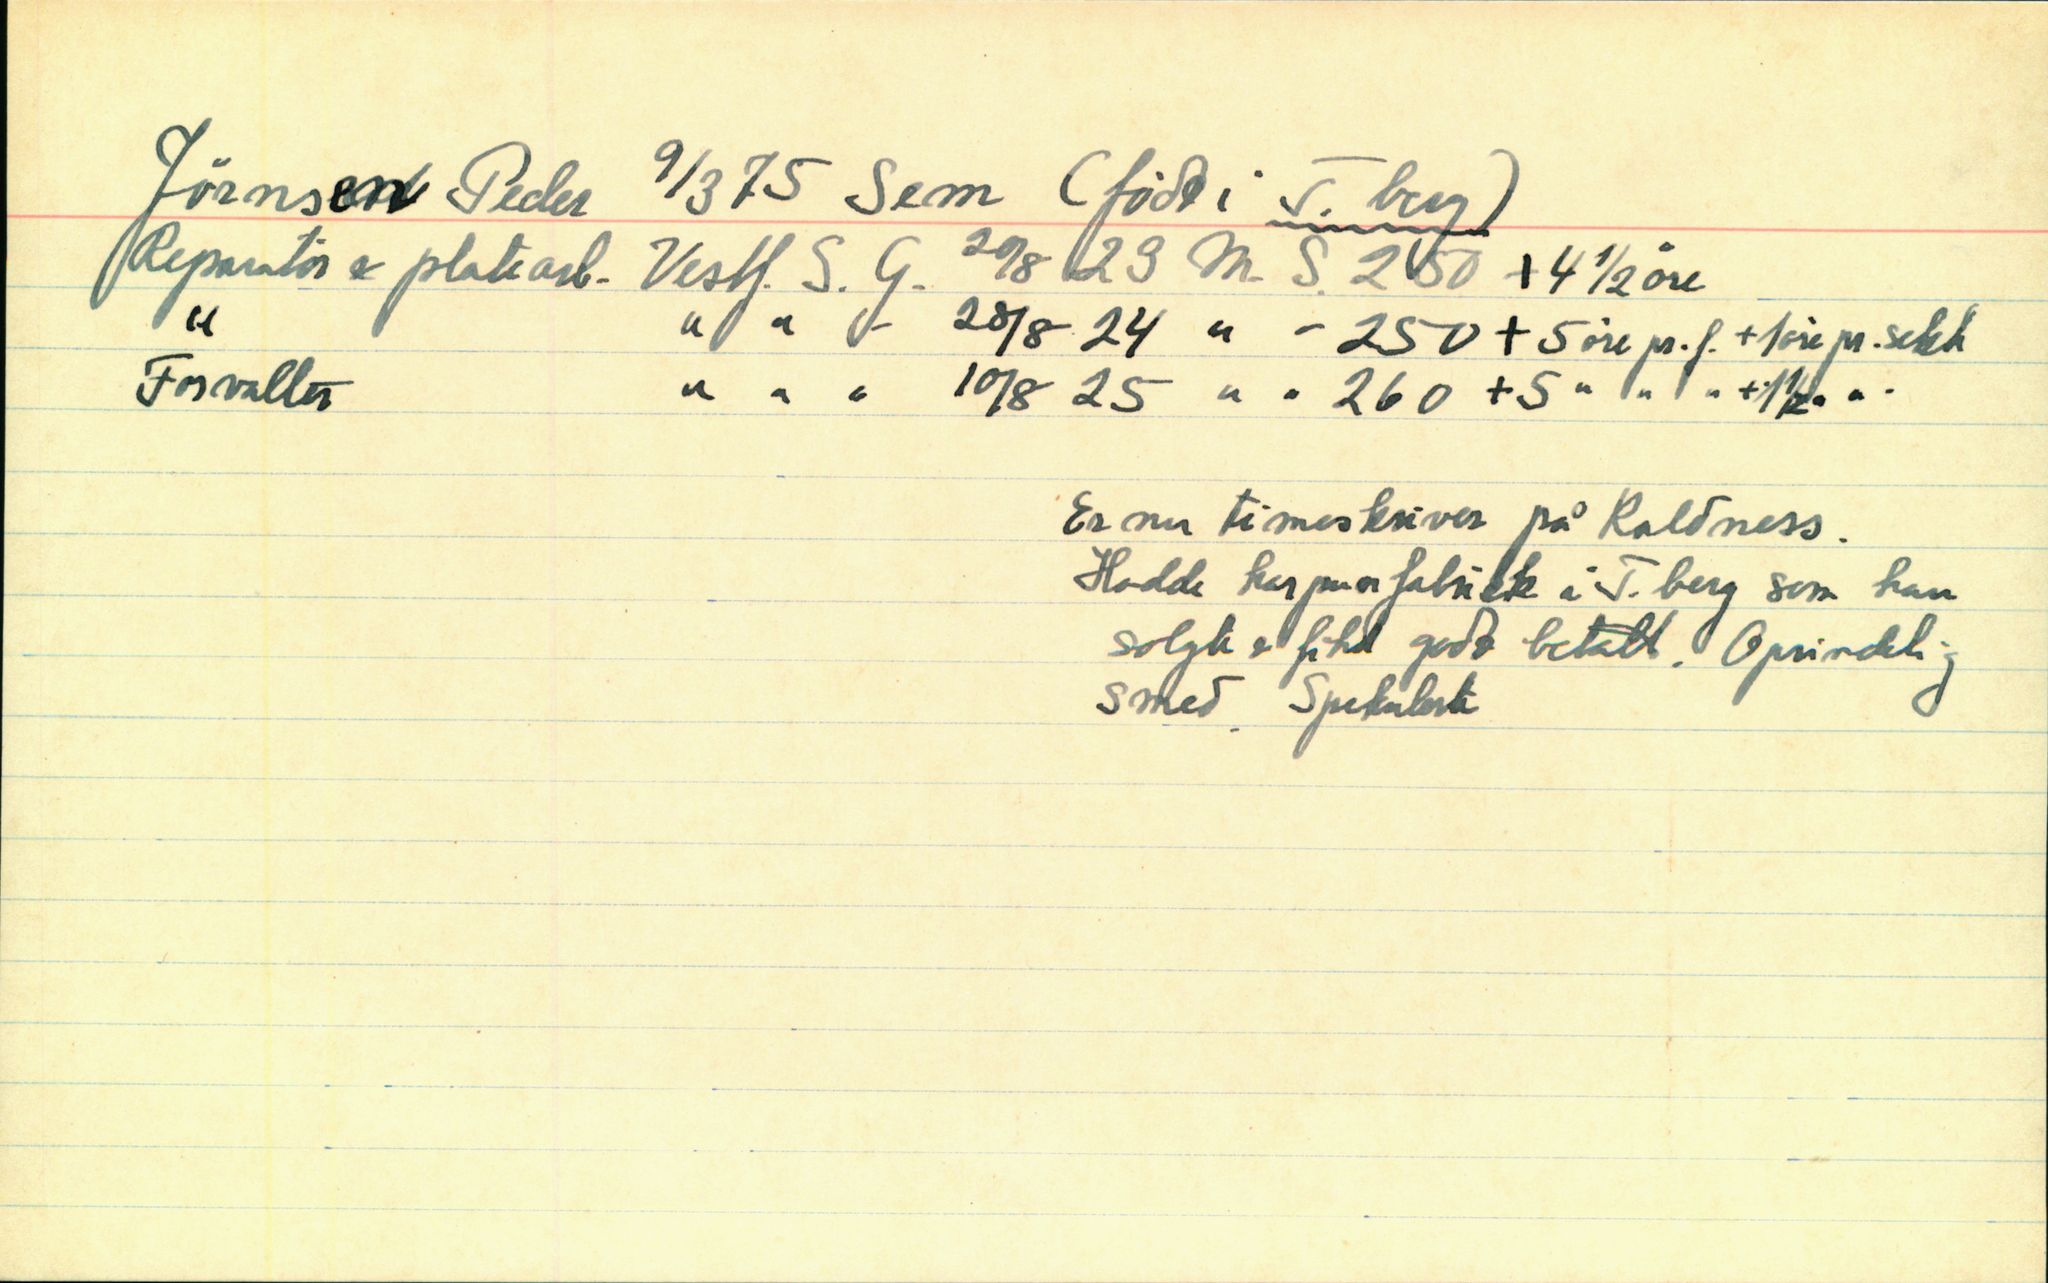 Jörnsen Peder 9/3 75 Sem (född i T. berg)
Reparatör & platearb. Vestf. S. G. 20/8 23 M. S. 250 + 4 1/2 öre
" " " - 28/8 24 " - 250 + 5 öre pr. f. + 1 öre pr. sekk
Forvalter " " " 10/8 25 " " 260 + 5 " " " + 1 1/2 " " -
Er nu timeskriver på Kaldness.
Hadde harpunfabrikk i T. berg som han
solgte & fikk godt betalt. Oprindelig
smed. Spekulerte